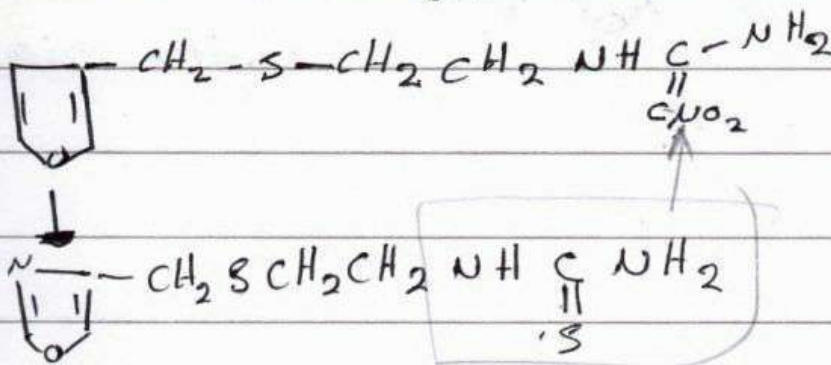 - CH2 - S - CH2 CH2 NH C - NH2
||
CNO2
O
N - CH2 S CH2CH2 NH C NH2
||
S
O